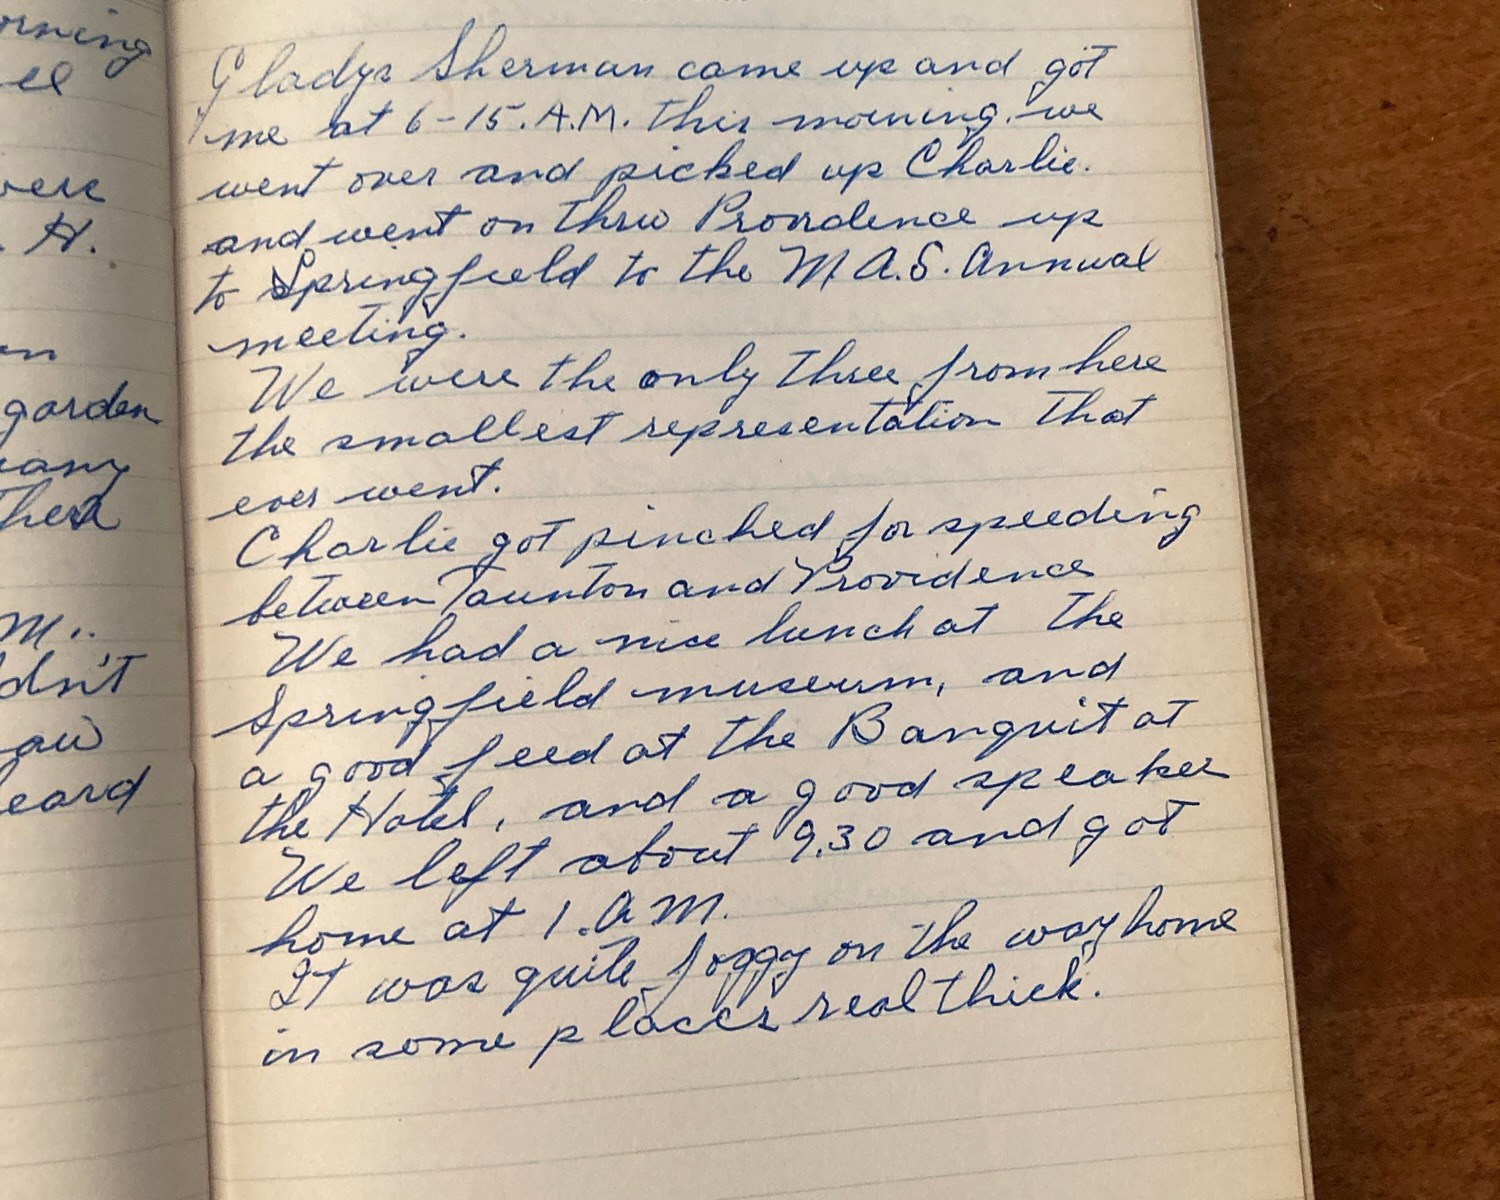 orning
el
were
. H.
on
garden
many
There
M..
dn't
saw
eard
Gladys Sherman came up and got
me at 6-15. A.M. this morning. we
went over and picked up Charlie.
and went on thru Providence up
to Springfield to the M A.S. Annual
meeting.
We were the only three from here
the smallest representation that
ever went.
Charlie got pinched for speeding
between Taunton and Providence
We had a nice lunch at the
Springfield museum, and
a good feed at the Banquit at
the Hotel, and a good speaker
We left about 9.30 and got
home at 1. A M.
It was quite foggy on the way home
in some places real thick.